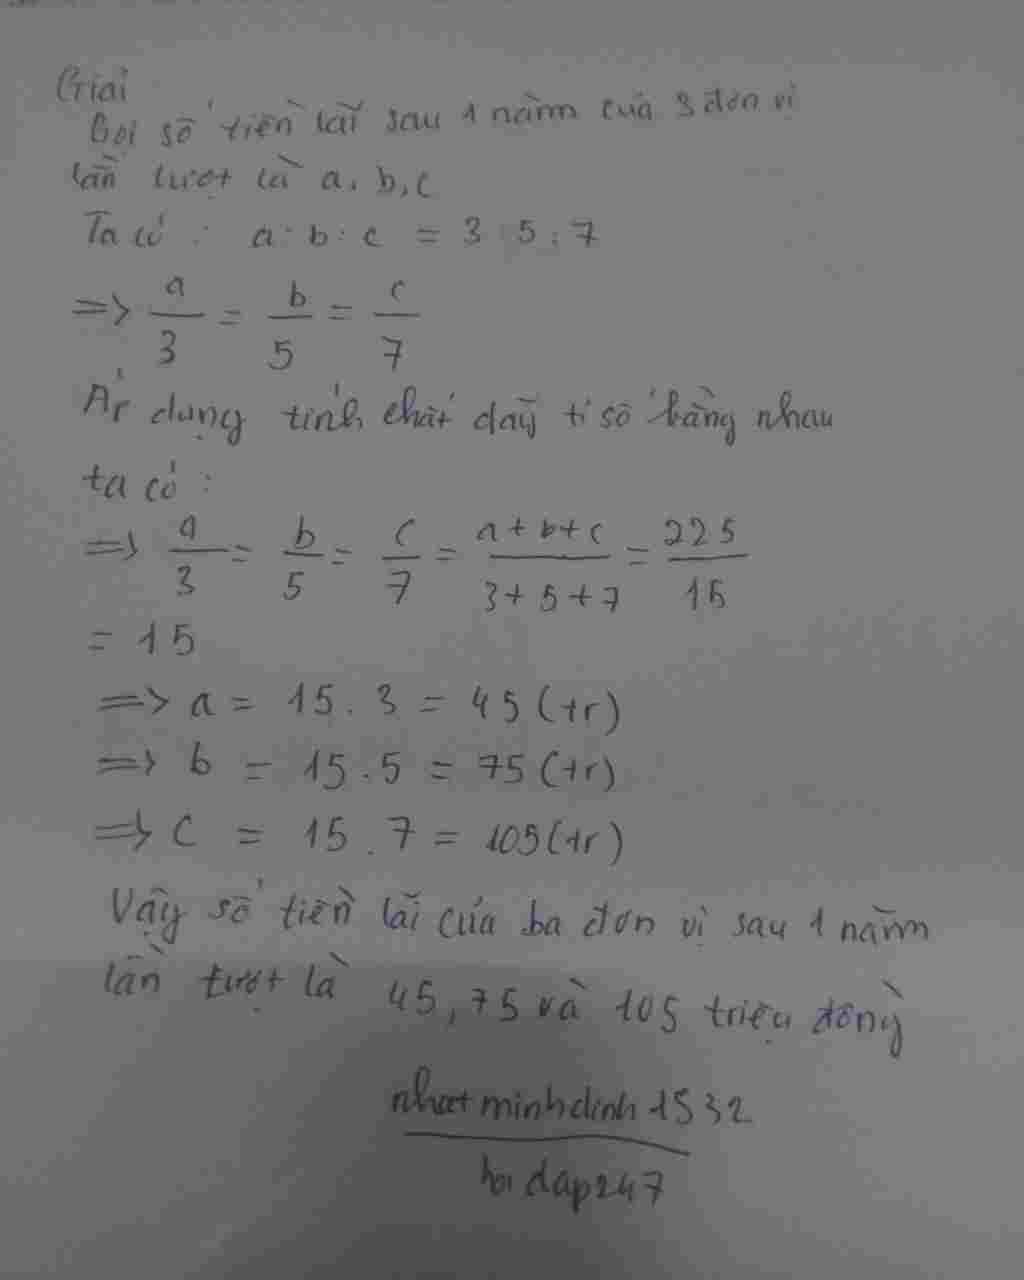 Giải
Gọi số tiền lãi sau 1 năm của 3 đơn vị
lần lượt là a, b, c
Ta có : a : b : c = 3 : 5 : 7
=> a/3 = b/5 = c/7
Áp dụng tính chất dãy tỉ số bằng nhau
ta có :
=> a/3 = b/5 = c/7 = a+b+c/3+5+7 = 225/15
= 15
=> a = 15 . 3 = 45 (tr)
=> b = 15 . 5 = 75 (tr)
=> c = 15 . 7 = 105 (tr)
Vậy số tiền lãi của ba đơn vị sau 1 năm
lần lượt là 45, 75 và 105 triệu đồng
nhatminhdinh1532
hoidap247